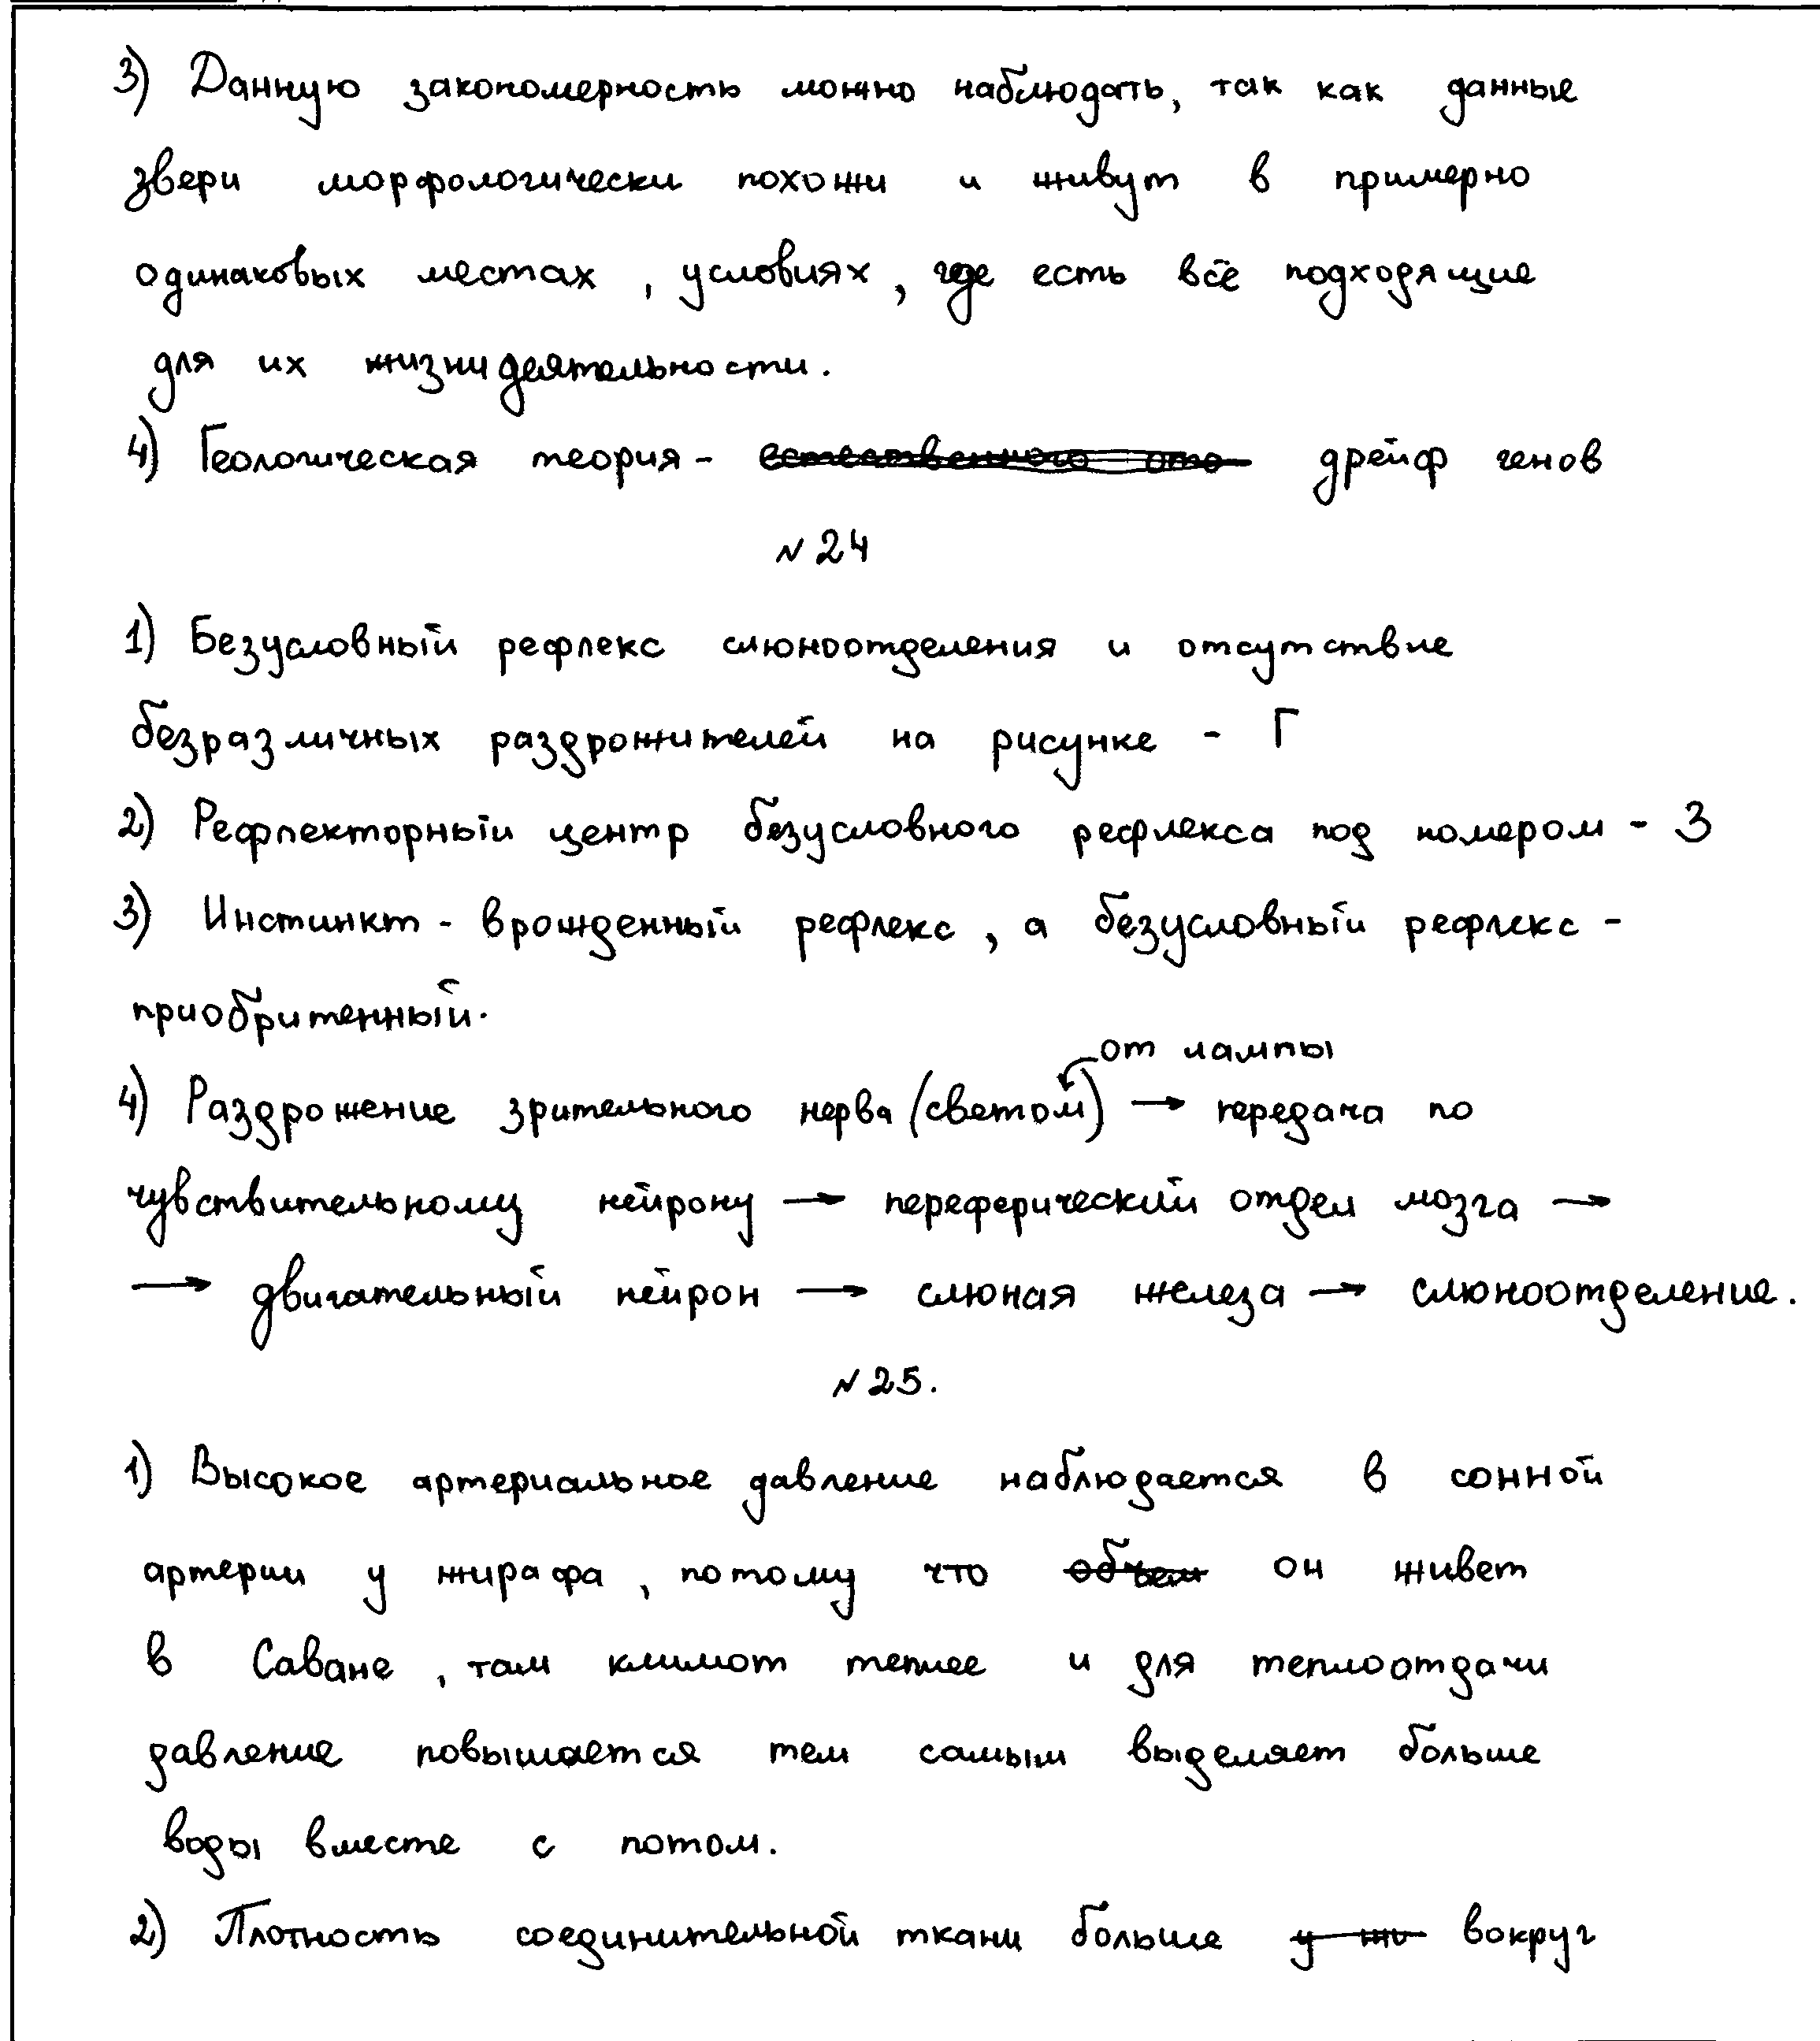 3) Данную закономерность можно наблюдать, так как данные
звери морфологически похожи и живут в примерно
одинаковых местах, условиях, где есть всё подходящие
для их жизнидеятельности.
4) Геологическая теория - естественного ото дрейф генов
№ 24
1) Безусловный рефлекс слюноотделения и отсутствие
безразличных раздрожителей на рисунке - Г
2) Рефлекторный центр безусловного рефлекса под номером - 3
3) Инстинкт - врожденный рефлекс, а безусловный рефлекс -
приобритенный.
от лампы
4) Раздрожение зрительного нерва (светом) → передача по
чувствительному нейрону → переферический отдел мозга →
→ двигательный нейрон → слюная железа → слюноотделение.
№ 25.
1) Высокое артериальное давление наблюдается в сонной
артерии у жирафа, потому что объем он живет
в Саване, там климот теплее и для теплоотдачи
давление повышается тем самым выделяет больше
воды вместе с потом.
2) Плотность соединительной ткани больше у жи вокруг